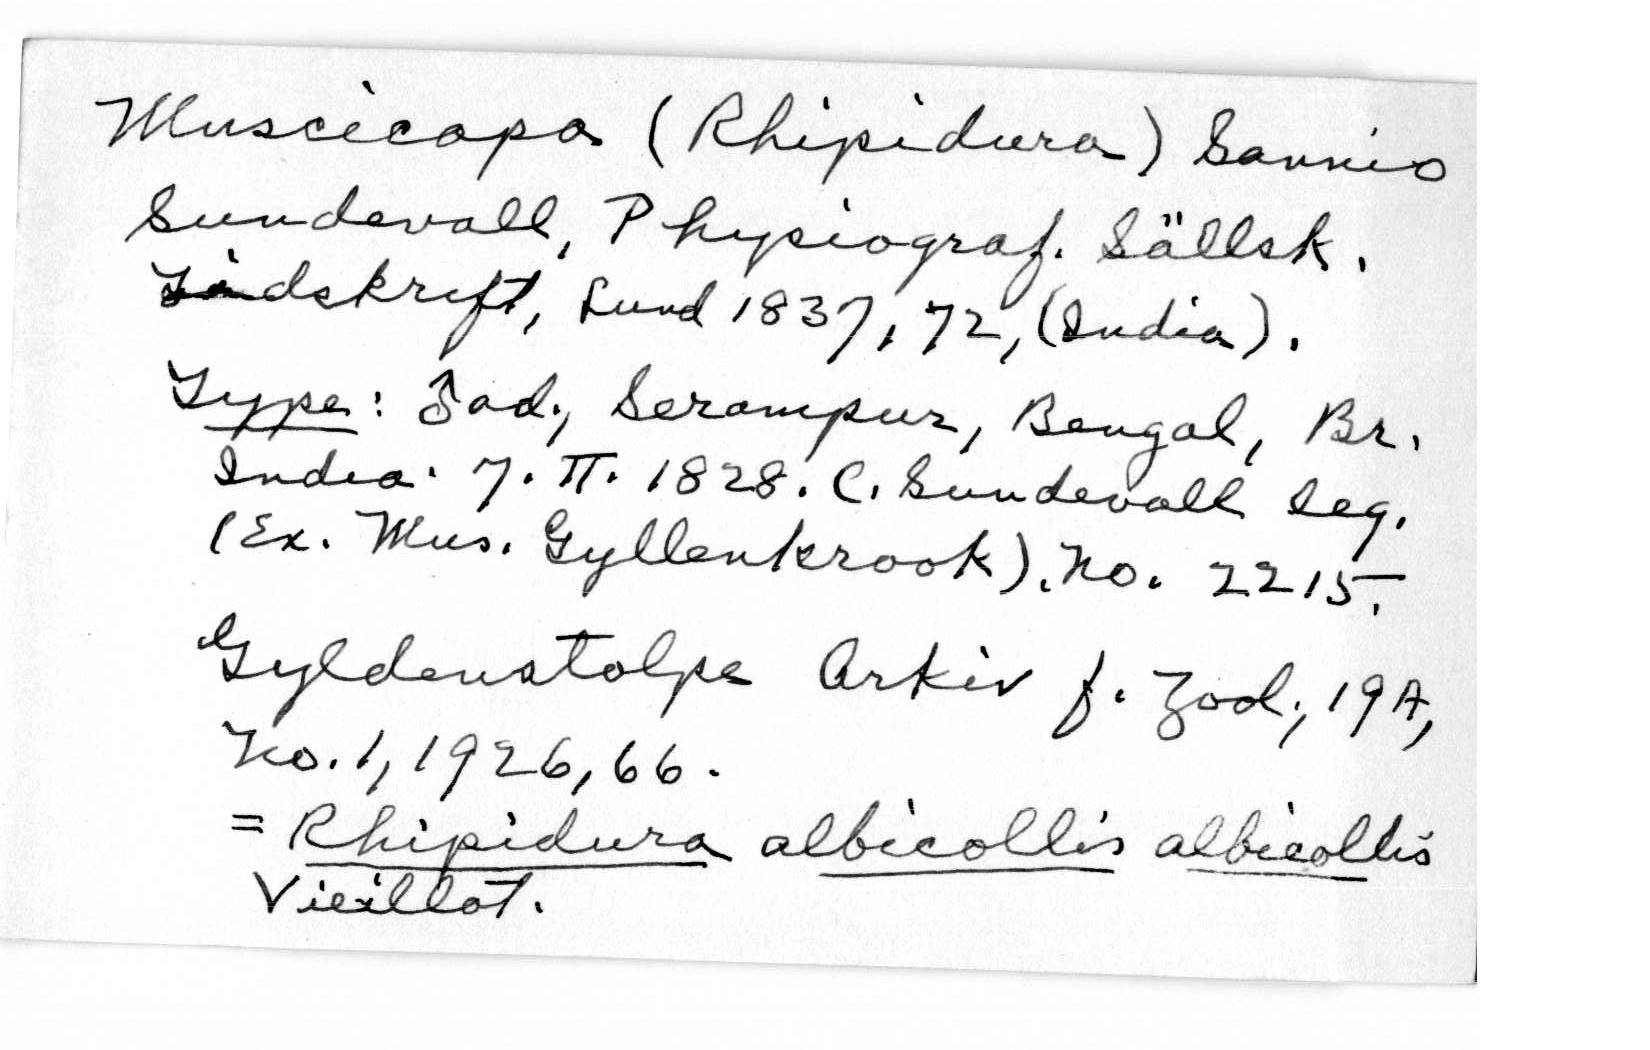 Muscicapa (Rhipidura) Sannio
Sundevall, Physiograf. Sällsk.
Tidskrift, Lund 1837, 72, (India).
Type: ♂ad., Serampur, Bengal, Br.
India. 7. II. 1828. C. Sundevall leg.
(Ex. Mus. Gyllenkrook). No. 2215.
Gyldenstolpe Arkiv f. Zool., 19A,
No. 1, 1926, 66.
= Rhipidura albicollis albicollis
Vieillot.